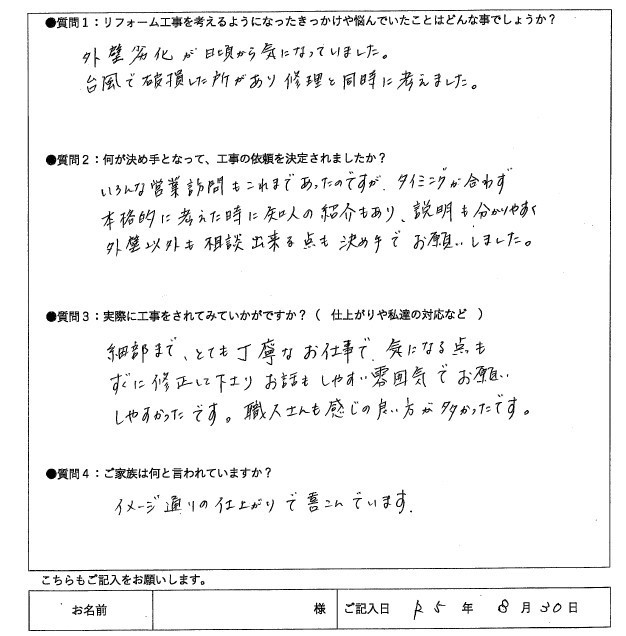 ●質問1：リフォーム工事を考えるようになったきっかけや悩んでいたことはどんな事でしょうか？
外壁劣化が日頃から気になっていました。
台風で破損した所があり修理と同時に考えました。
●質問2：何が決め手となって、工事の依頼を決定されましたか？
いろんな営業訪問もこれまであったのですが、タイミングが合わず
本格的に考えた時に知人の紹介もあり、説明も分かりやすく
外壁以外も相談出来る点も決め手でお願いしました。
●質問3：実際に工事をされてみていかがですか？（ 仕上がりや私達の対応など ）
細部まで、とても丁寧なお仕事で、気になる点も
すぐに修正して下さりお話もしやすい雰囲気でお願い
しやすかったです。職人さんも感じの良い方が多かったです。
●質問4：ご家族は何と言われていますか？
イメージ通りの仕上がりで喜こんでいます.
こちらもご記入をお願いします。
お名前 様 ご記入日 R5年 8月30日